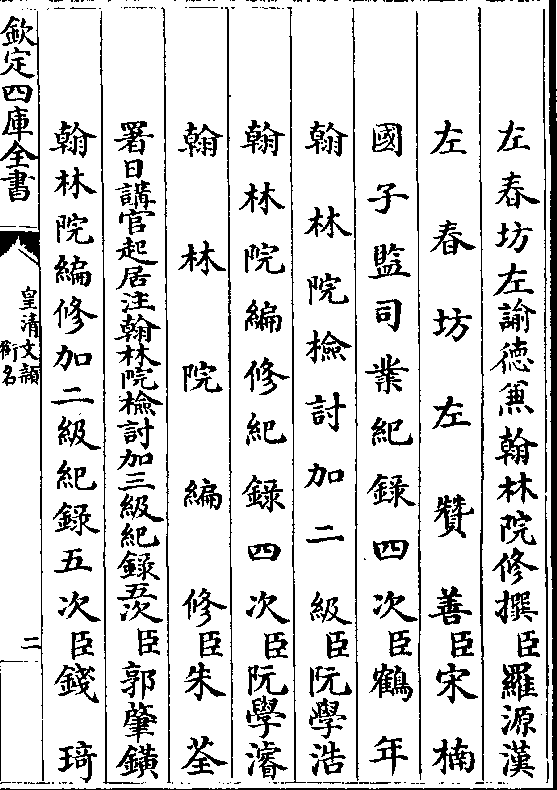 左春坊左諭德兼翰林院修撰臣羅源漢
左春坊左贊善臣宋楠
國子監司業紀錄四次臣鶴年
翰林院檢討加二級臣阮學浩
翰林院編修紀錄四次臣阮學濬
翰林院編修臣朱荃
署日講官起居注翰林院檢討加三級紀錄五次臣郭肇鐄
翰林院編修加二級紀錄五次臣錢琦
欽定四庫全書
皇清文穎
銜名
二